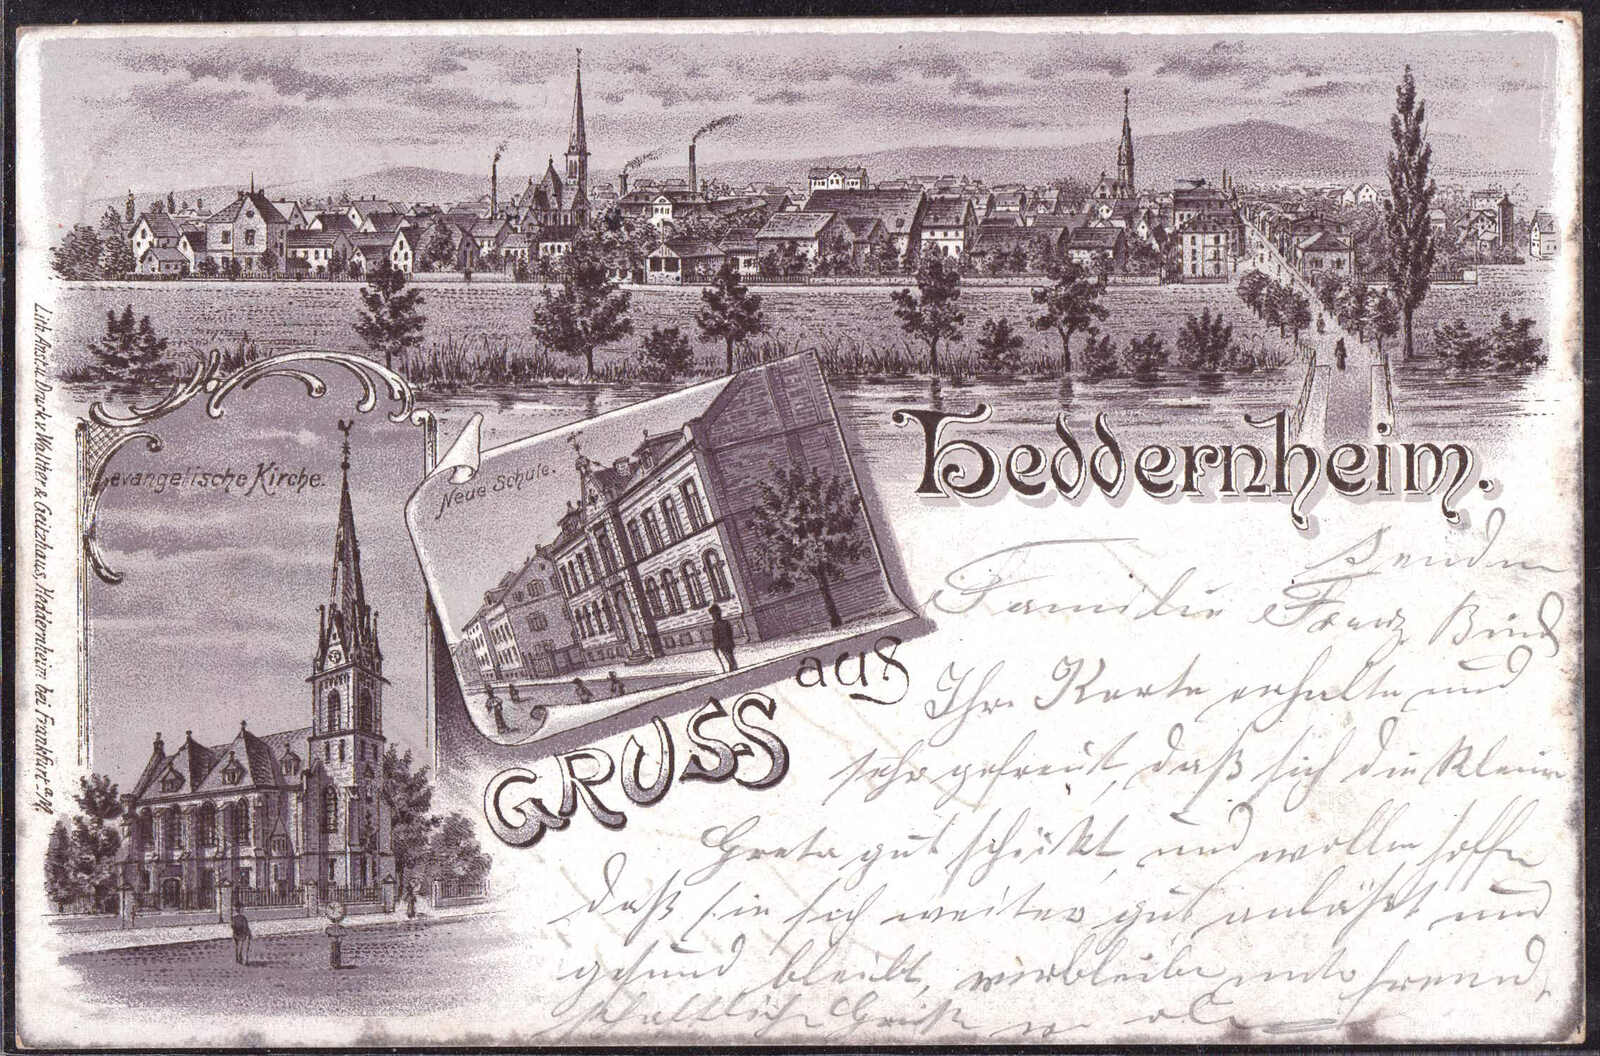 Lith. Anst. u. Druck v. Walther & Geitzhaus, Heddernheim bei Frankfurt a/M.
evangelische Kirche.
Neue Schule.
GRUSS aus
Heddernheim.
Senden
Familie Franz Bind
Ihre Karte erhalten und
sehr gefreut, daß sich die Kleine
Greta gut schickt, und wollen hoffen
daß sie sich weiter gut anläßt und
gesund bleibt, verbleibe unter freund
schaftlichen Grüße